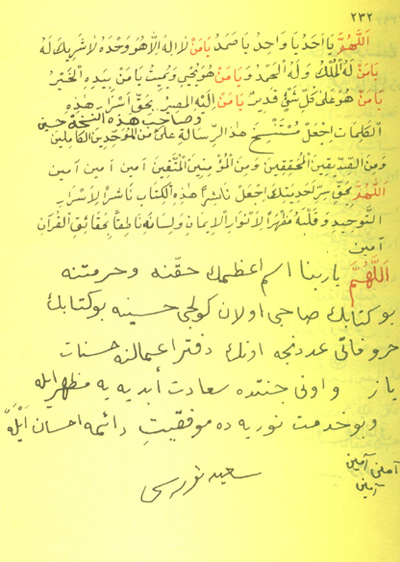 ٢٣٢
اَللّٰهُمَّ يَا اَحَدُ يَا وَاحِدُ يَا صَمَدُ يَا مَنْ لَا اِلٰهَ اِلَّا هُوَ وَحْدَهُ لَا شَرِيكَ لَهُ
يَا مَنْ لَهُ الْمُلْكُ وَلَهُ الْحَمْدُ وَيَا مَنْ هُوَ يُحْيِي وَيُمِيتُ يَا مَنْ بِيَدِهِ الْخَيْرُ
يَا مَنْ هُوَ عَلٰى كُلِّ شَىْءٍ قَدِيرٌ يَا مَنْ اِلَيْهِ الْمَصِيرُ بِحَقِّ اَسْرَارِ هٰذِهِ
وصاحب هذه النسخة حسين
اَلْكَلِمَاتِ اِجْعَلْ مُسْتَنْسِخَ هٰذِهِ الرِّسَالَةِ مِنَ الْمُوَحِّدِينَ الْكَامِلِينَ
وَمِنَ الصِّدِّيقِينَ الْمُحَقِّقِينَ وَمِنَ الْمُؤْمِنِينَ الْمُتَّقِينَ اٰمين اٰمين اٰمين
اَللّٰهُمَّ بِحَقِّ سِرِّ اَحَدِيَّتِكَ اِجْعَلْ نَاشِرَ هٰذِهِ الْكِتَابِ نَاشِرًا لِاَسْرَارِ
التَّوْحِيدِ وَقَلْبَهُ مَظْهَرًا لِاَنْوَارِ الْاِيمَانِ وَلِسَانَهُ نَاطِقًا بِحَقَائِقِ الْقُرْاٰنِ
اٰمين
اَللّٰهُمَّ يا ربنا اسم اعظمك حقنه و حرمتنه
بو كتابك صاحبى اولان كولجى حسينه بو كتابك
حروفاتى عددنجه اونك دفتر اعمالنه حسنات
ياز و اونى جنتده سعادت أبديه يه مظهر ايله
و بو خدمت نوريه ده موفقيتِ دائمه احسان اَيْلَهْ
آمين آمين
آمين
سعيد نورسى